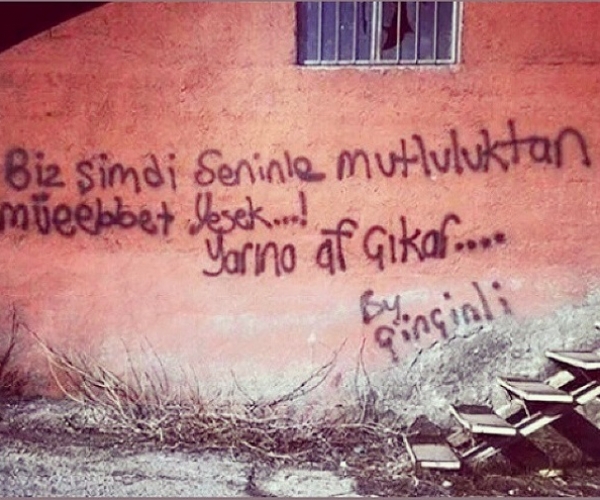 Biz şimdi Seninle mutluluktan
müebbet yesek...!
Yarına af Çıkar....
By
Çinçinli